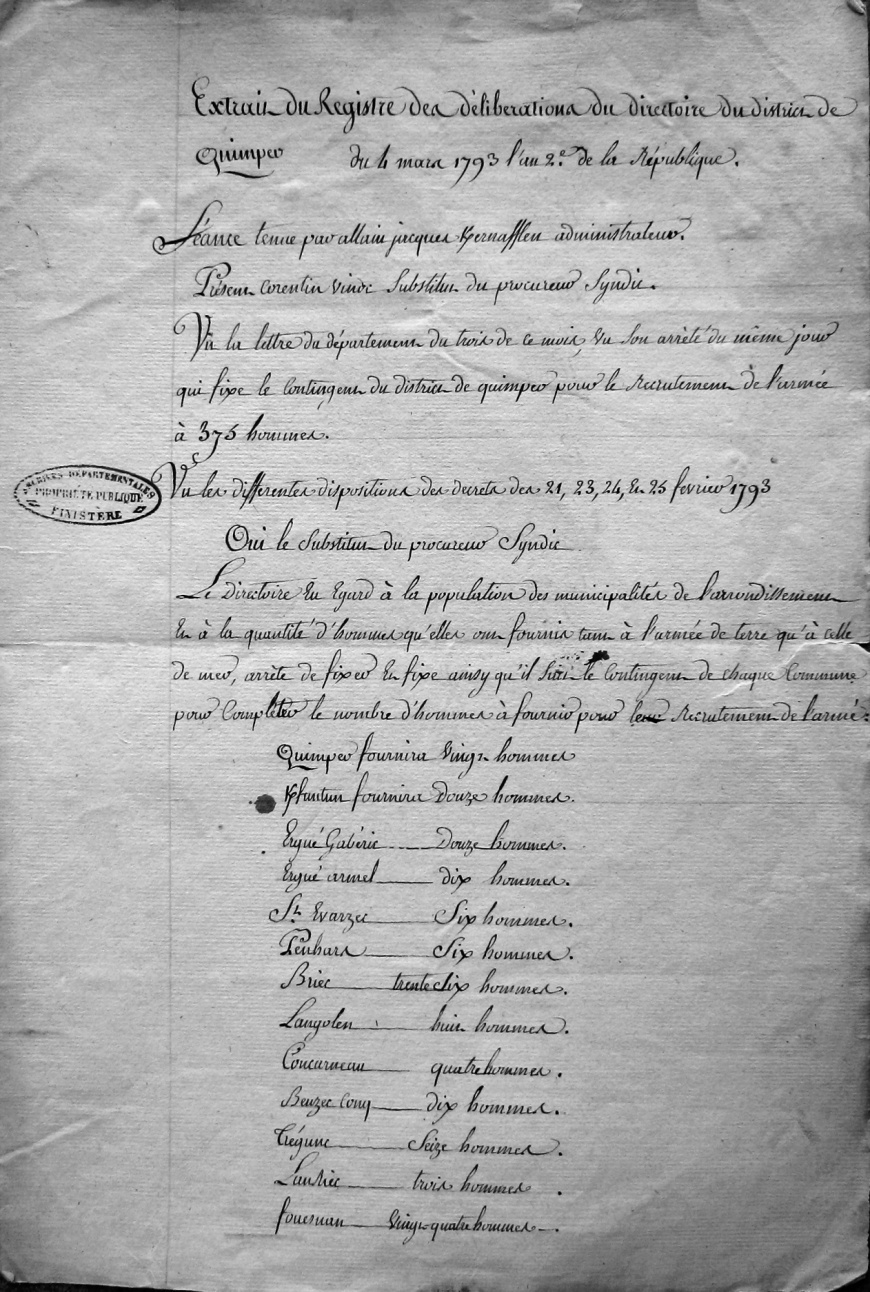 Extrait du Registre des déliberations du directoire du district de
Quimper du 4 mars 1793 l'an 2.e de la République.
Séance tenue par allain jacques Kernafflen administrateur.
Présent Corentin vinoc Substitut du procureur Syndic.
Vu la lettre du département du trois de ce mois, Vu Son arrêté du même jour
qui fixe le Contingent du district de quimper pour le Recrutement de l'armée
à 375 hommes.
ARCHIVES DÉPARTEMENTALES
PROPRIÉTÉ PUBLIQUE
FINISTÈRE
Vu les differentes dispositions des decrets des 21, 23, 24, Et 25 fevrier 1793
Oui le Substitut du procureur Syndic
Le Directoire Eu Egard à la population des municipalités de l'arrondissement
Et à la quantité d'hommes qu'elles ont fournis tant à l'armée de terre qu'à celle
de mer, arrête de fixer Et fixe ainsy qu'il Suit le Contingent de chaque Commune
pour Completter le nombre d'hommes à fournir pour leur Recrutement de l'armée:
Quimper fournira Vingt hommes
Kfeuntun fournira Douze hommes.
Ergué Gabéric Douze hommes.
Ergué armel dix hommes.
St. Evarzec Six hommes.
Penhars Six hommes.
Briec trente Six hommes.
Langolen huit hommes.
Concarneau quatre hommes.
Beuzec Conq dix hommes.
Trégunc Seize hommes.
Lanriec trois hommes.
fouesnan Vingt-quatre hommes.